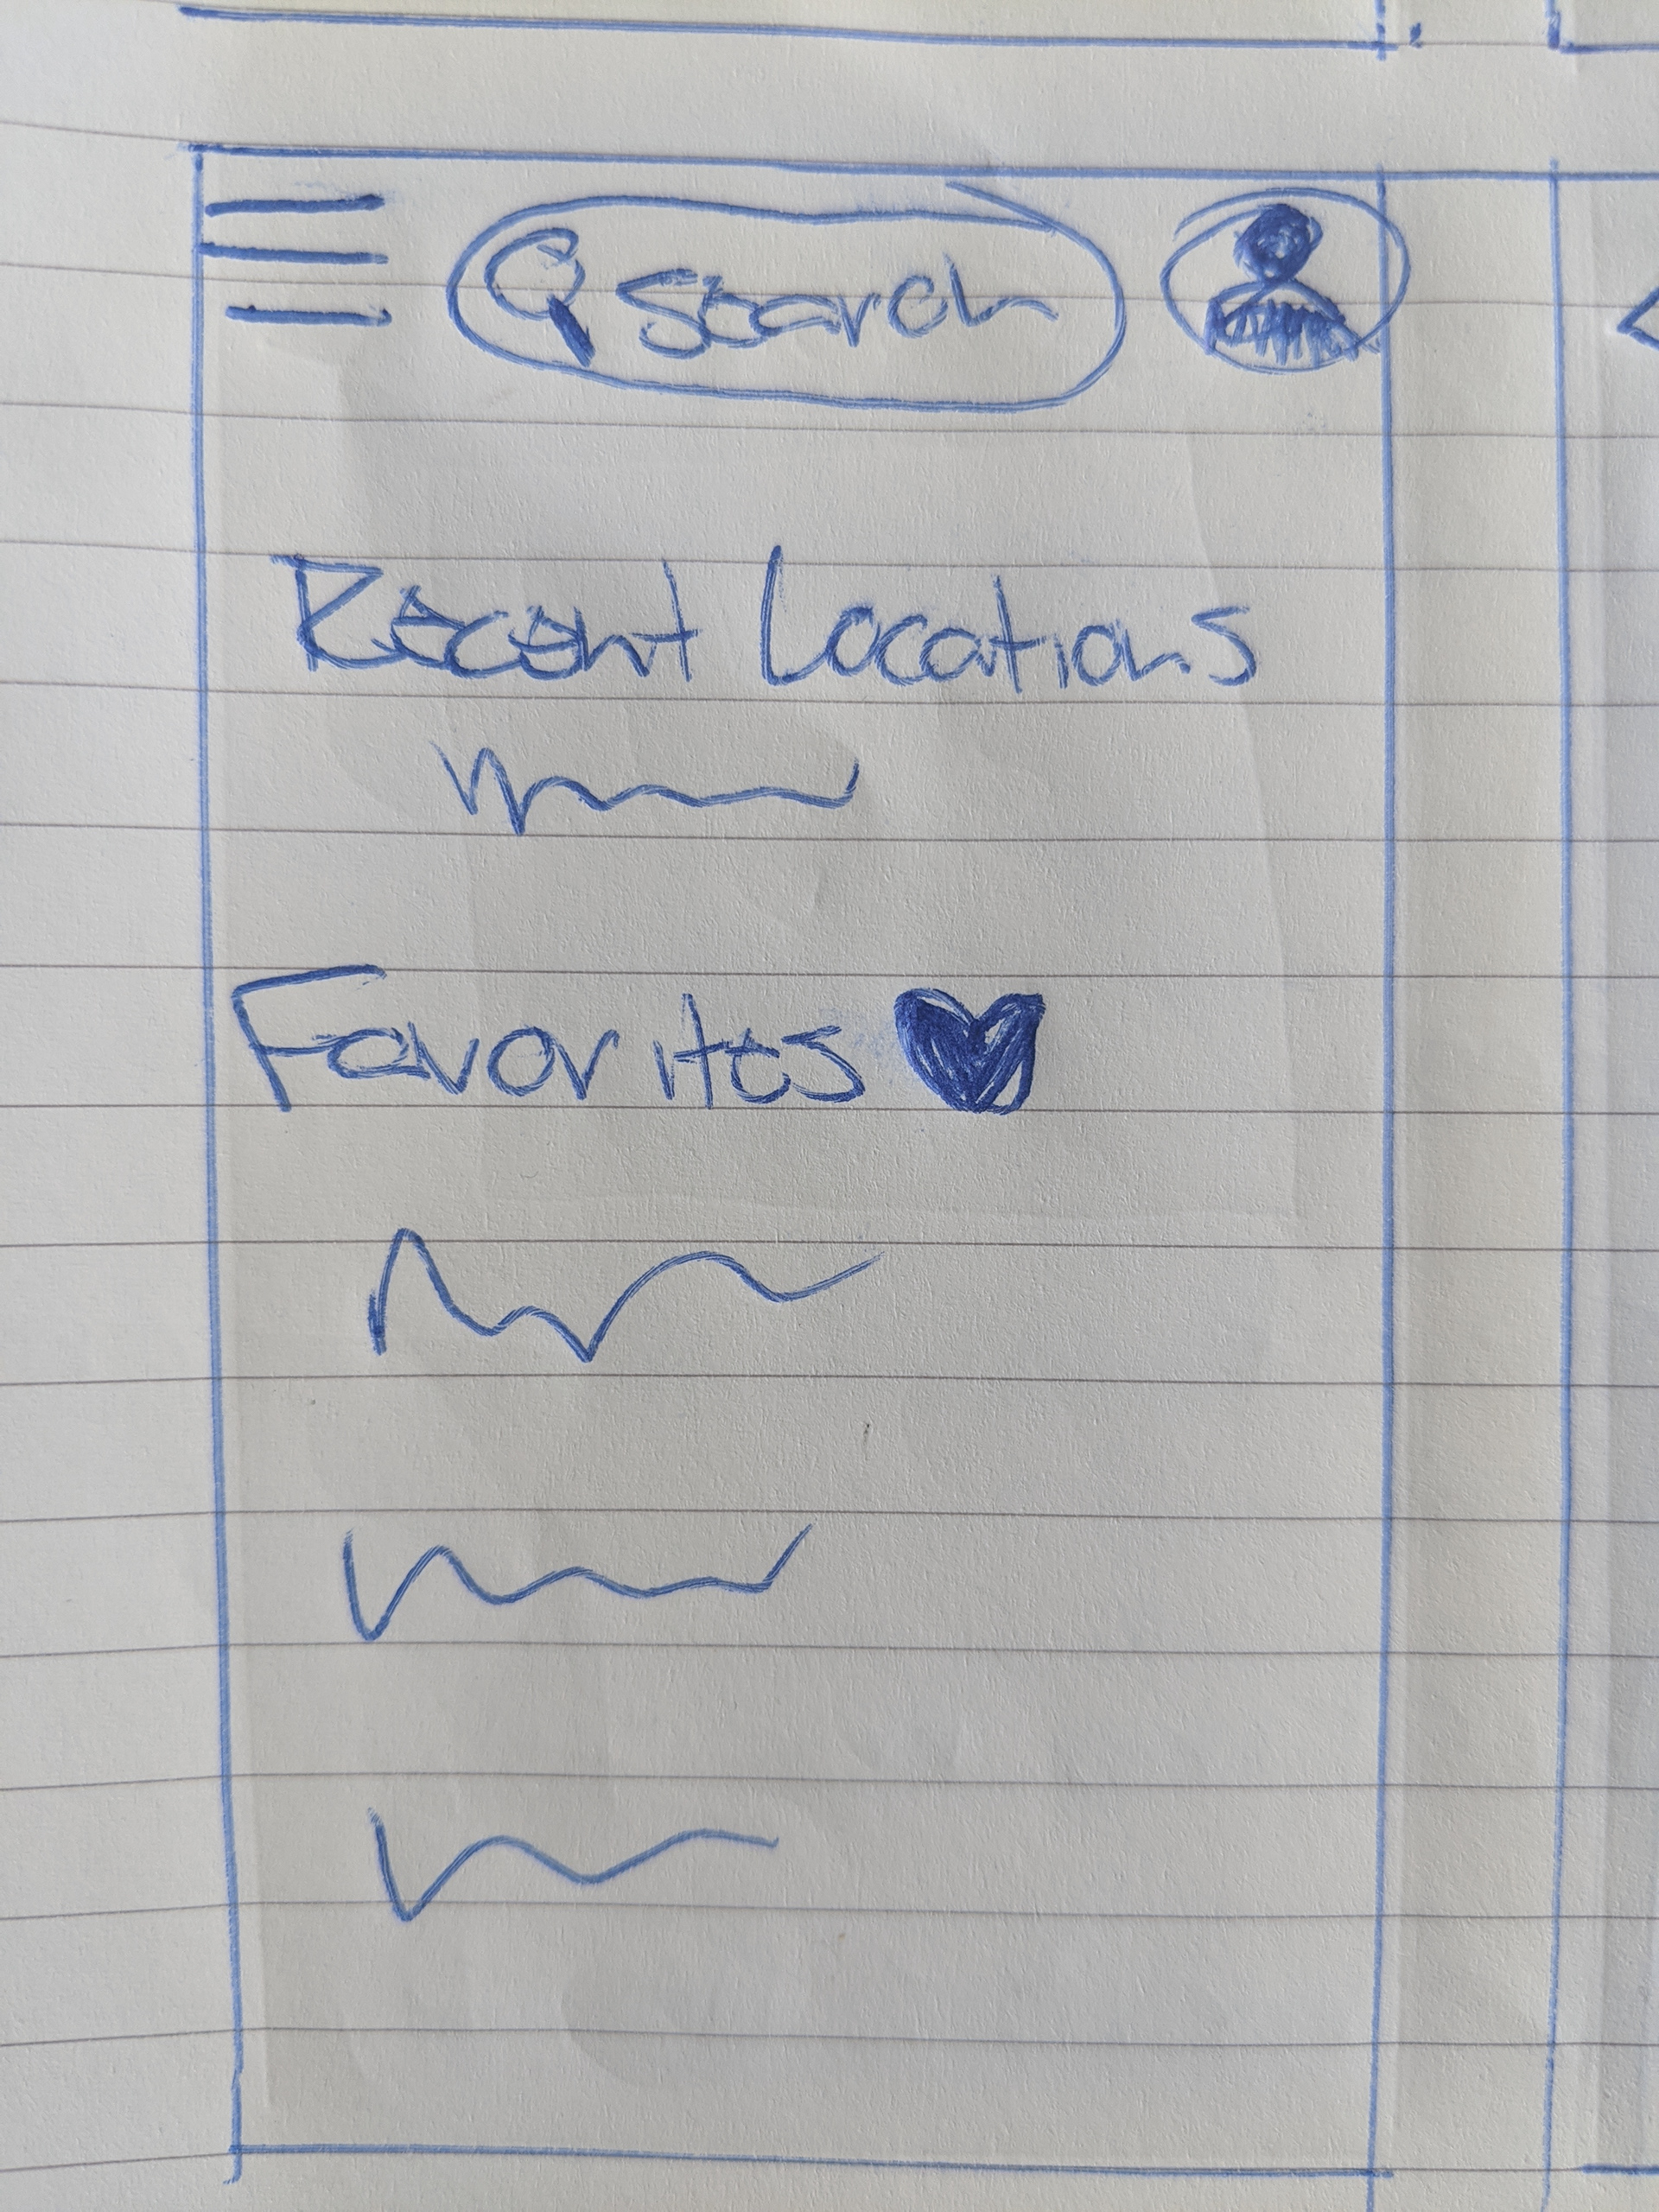 Search
Recent Locations
Favorites